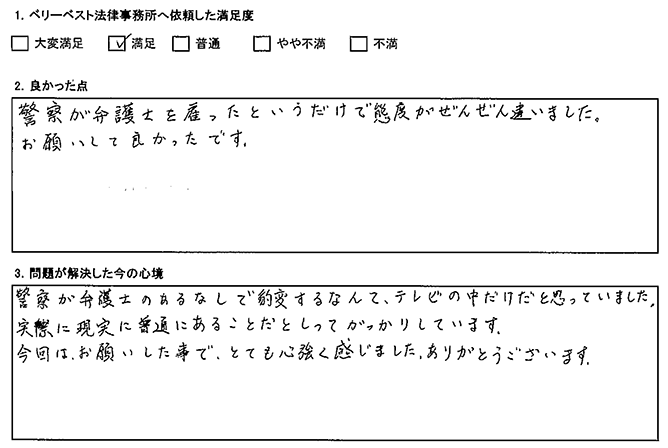 1. ベリーベスト法律事務所へ依頼した満足度
大変満足 満足 普通 やや不満 不満
2. 良かった点
警察が弁護士を雇ったというだけで態度がぜんぜん違いました。
お願いして良かったです。
3. 問題が解決した今の心境
警察が弁護士のあるなしで豹変するなんて、テレビの中だけだと思っていました。
実際に現実に普通にあることだとしってがっかりしています。
今回は、お願いした事で、とても心強く感じました。ありがとうございます。